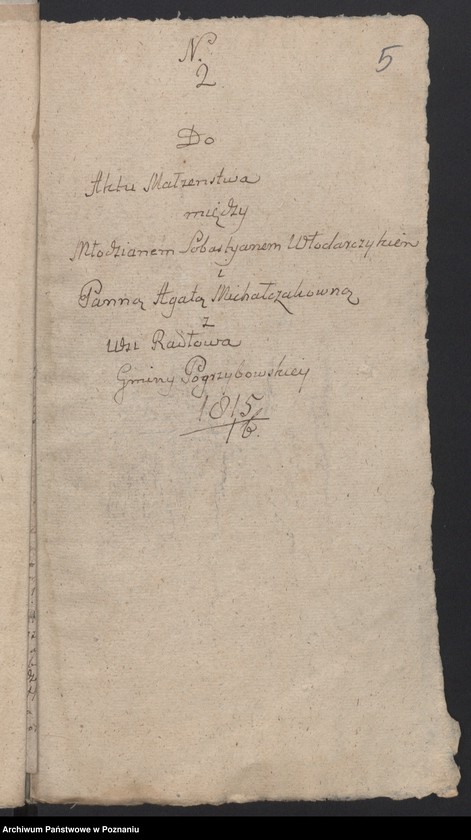 N.
2
5
Do
Aktu Małzenstwa
między
Młodzianem Sobastyanem Włodarczykiem
i
Panną Agatą Michałczakowną
z
Wsi Radłowa
Gminy Pogrzybowskiey
1815/16.
Archiwum Państwowe w Poznaniu